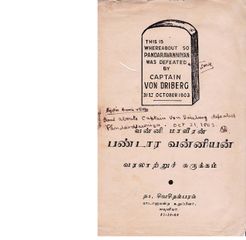 THIS IS
WHEREABOUT SO
PANDARAVANNIYAN
WAS DEFEATED
BY
CAPTAIN
VON DRIBERG
31ST OCTOBER 1803
Captain Von Driberg defeated
Pandaravanniyan. OCT 31, 1803
வன்னி மாவீரன்
பண்டார வன்னியன்
வரலாற்றுச் சுருக்கம்